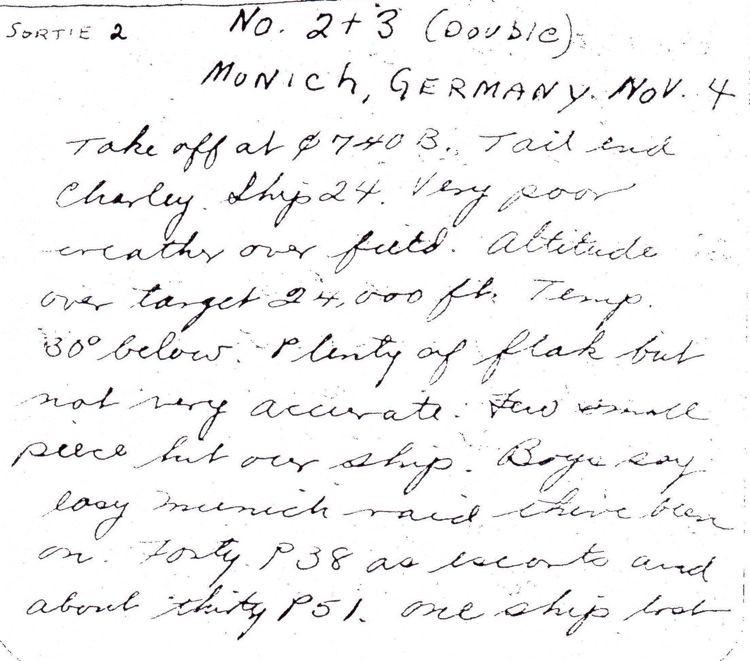 SORTIE 2
No. 2+3 (Double)
Munich, Germany. Nov. 4
Take off at 0740 B. Tail end
Charley. Ship 24. Very poor
weather over field. Altitude
over target 24,000 ft. Temp.
30° below. Plenty of flak but
not very accurate. Few small
piece hit our ship. Boys say
easy Munich raid been
on. Forty P38 as escorts and
about thirty P51. One ship lost